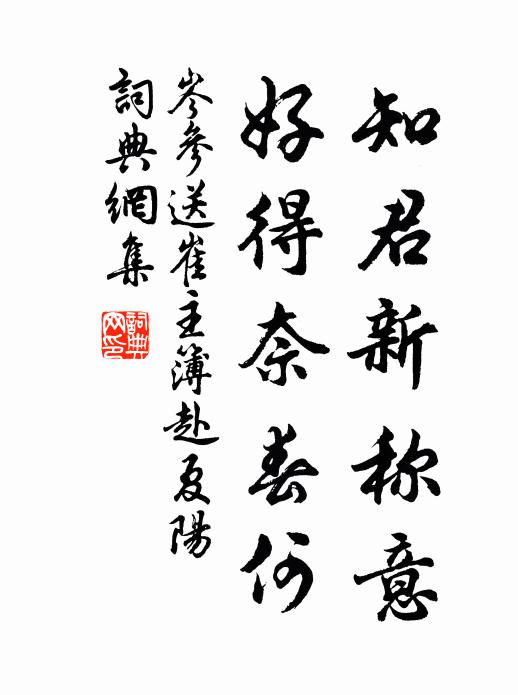 知君新称意
好得奈春何
岑參送崔主簿赴夏陽
詞典網集
詞典網印